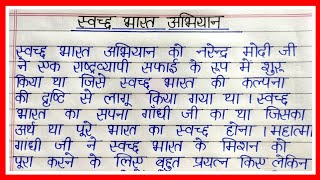 स्वच्छ भारत अभियान
स्वच्छ भारत अभियान की नरेन्द्र मोदी जी
ने एक राष्ट्रव्यापी सफाई के रूप में शुरू
किया था जिसे स्वच्छ भारत की कल्पना
की दृष्टि से लागू किया गया था । स्वच्छ
भारत का सपना गाँधी जी का था जिसका
अर्थ था पूरे भारत का स्वच्छ होना । महात्मा
गाँधी जी ने स्वच्छ भारत के मिशन को
पूरा करने के लिए बहुत प्रयत्न किए लेकिन